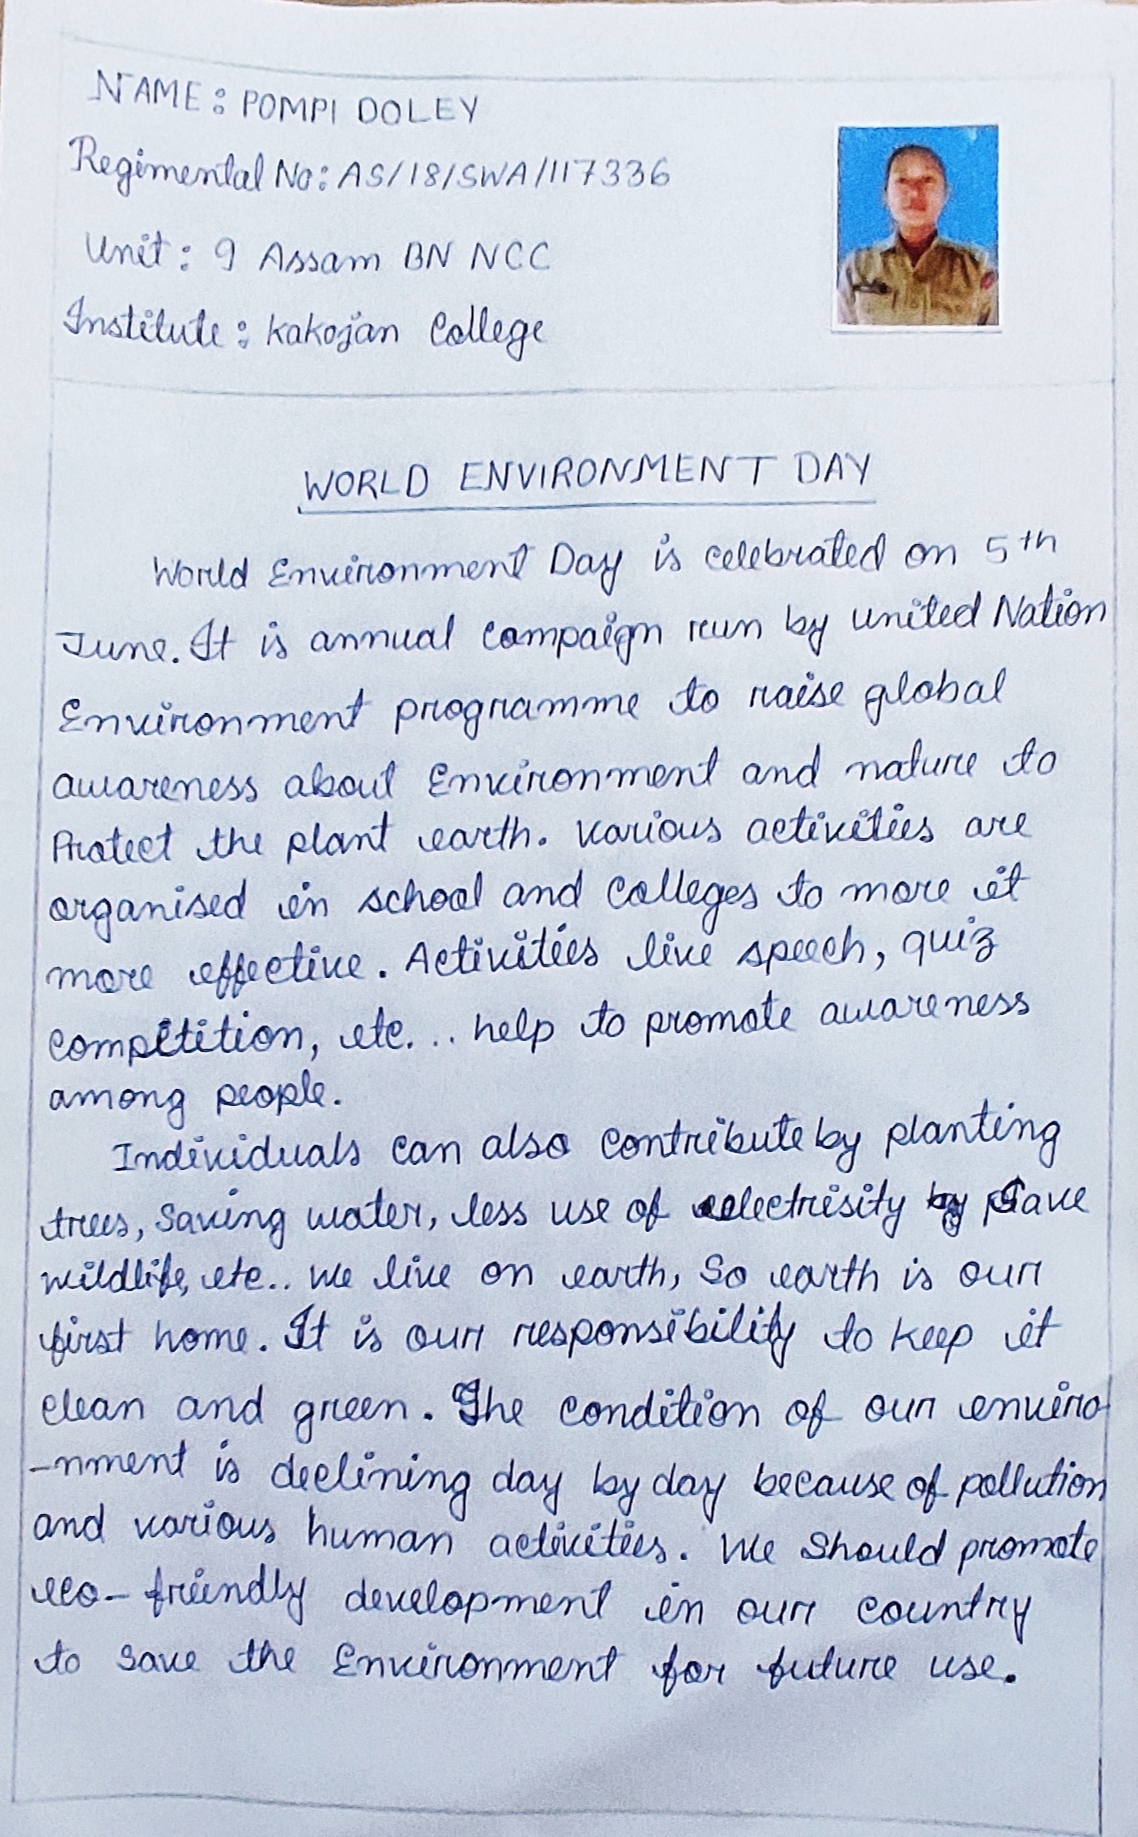 NAME: POMPI DOLEY
Regimental No: AS/18/SWA/117336
Unit: 9 Assam BN NCC
Institute: Kakojan College
WORLD ENVIRONMENT DAY
World Environment Day is celebrated on 5th
June. It is annual campaign run by united Nation
Environment programme to raise global
awareness about Environment and nature to
Protect the plant earth. various activities are
organised in school and colleges to more it
more effective. Activities live speech, quiz
competition, etc... help to promote awareness
among people.
Individuals can also contribute by planting
trees, saving water, less use of electrisity save
wildlife, etc.. we live on earth, So earth is our
first home. It is our responsibility to keep it
clean and green. The condition of our enviro
-nment is declining day by day because of pollution
and various human activities. We should promote
eco-friendly development in our country
to save the Environment for future use.